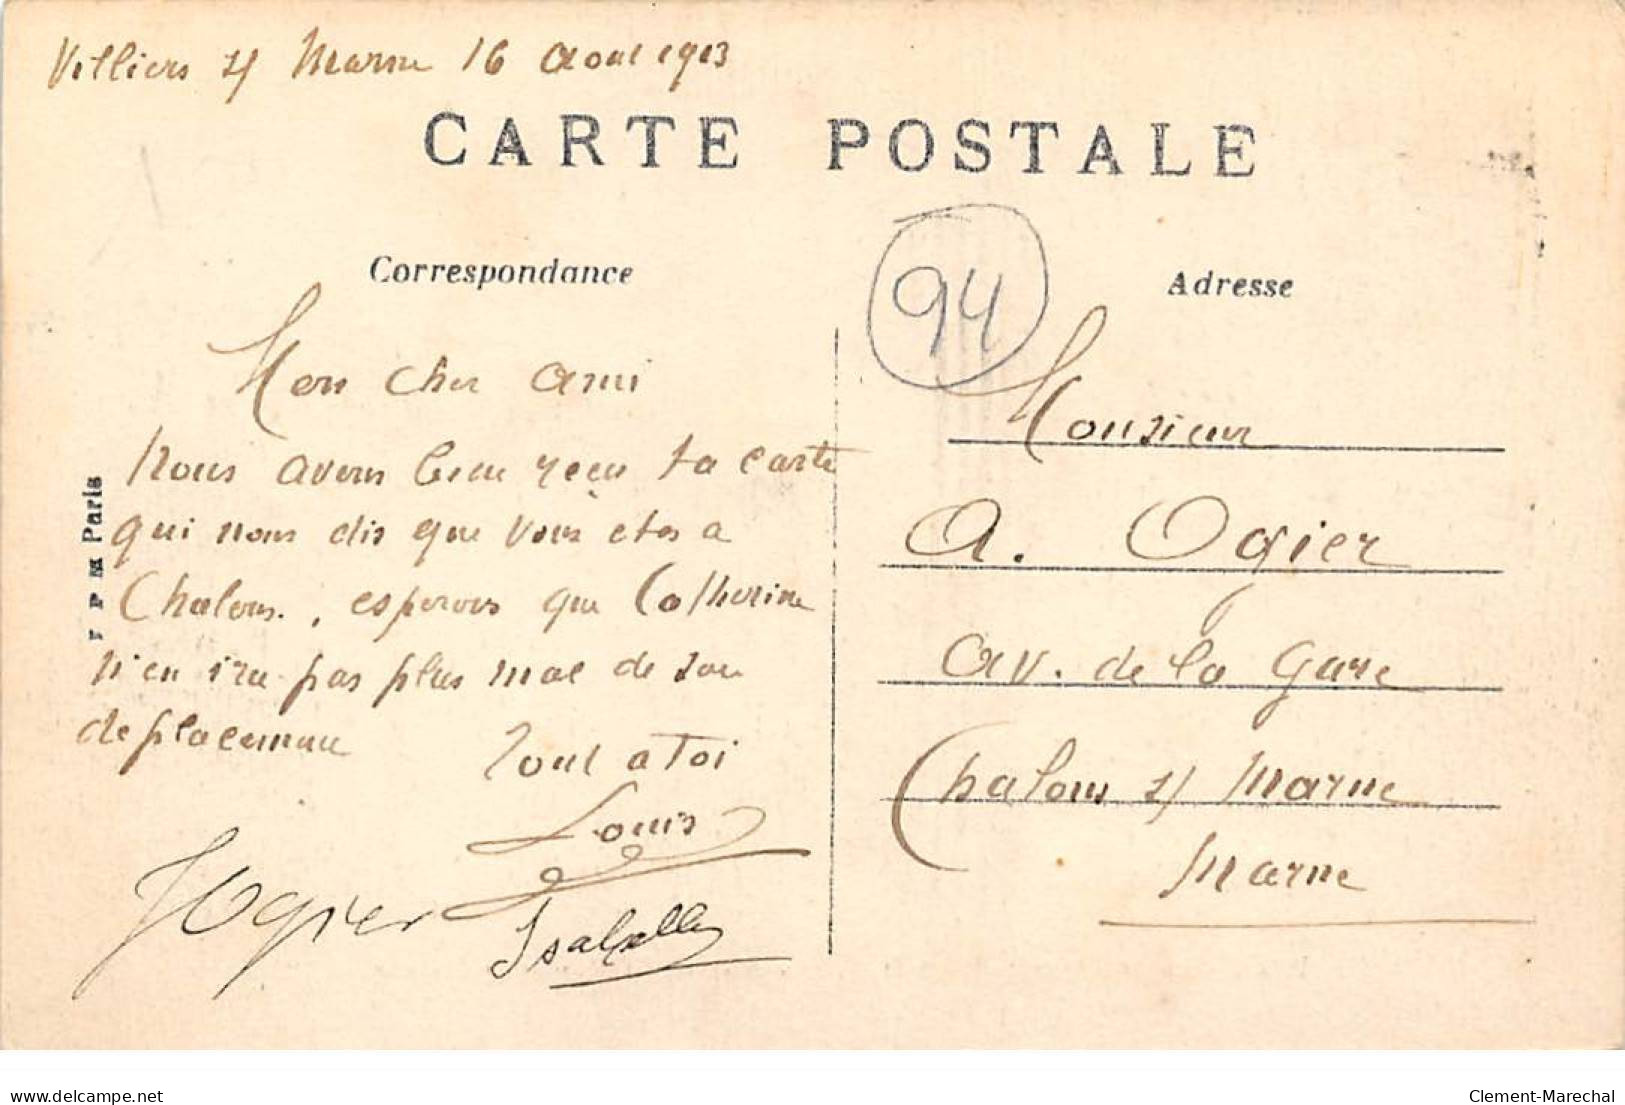 Villiers s/ Marne 16 Aout 1913
CARTE POSTALE
Correspondance
94
Adresse
Mon cher ami
Nous avons bien reçu ta carte
qui nous dis que vous etes a
Chalons. , esperons que Catherine
n'en ira pas plus mal de son
deplacement
Tout a Toi
Louis
Ogier
Isabelle
Monsieur
A. Ogier
av. de la Gare
Chalons s/ Marne
Marne
F P M Paris
delcampe.net
Clement-Marechal